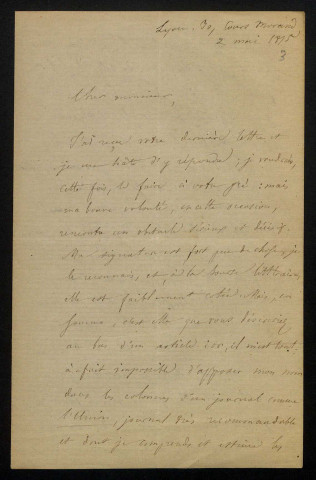 Lyon - 30, cours Morand
2 mai 1895
3
Cher monsieur,
J'ai reçu votre dernière lettre et
je me hâte d'y répondre ; je voudrais,
cette fois, le faire à votre gré : mais
ma bonne volonté, en cette occasion,
rencontre un obstacle sérieux et décisif.
Ma signature est fort peu de chose, je
le reconnais, et, à la bourse littéraire,
elle est faiblement cotée. Mais, en
somme, c'est elle que vous désirez,
au bas d'un article ; or, il m'est tout
à fait impossible d'apposer mon nom
dans les colonnes d'un journal comme
l'Univers, journal très recommandable
et dont je comprends et estime les